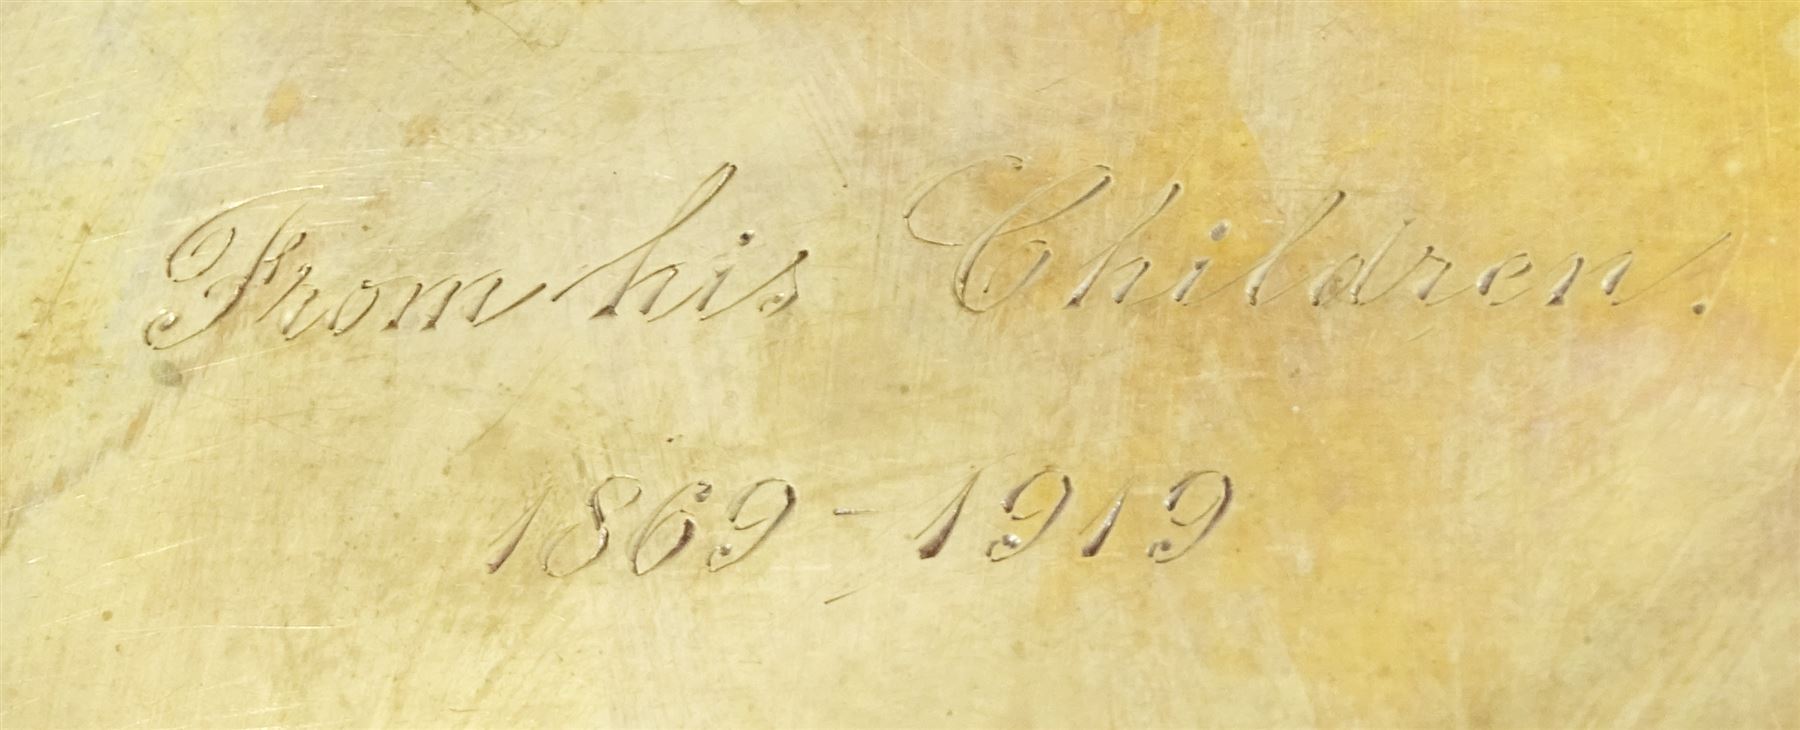 From his Children.
1869-1919